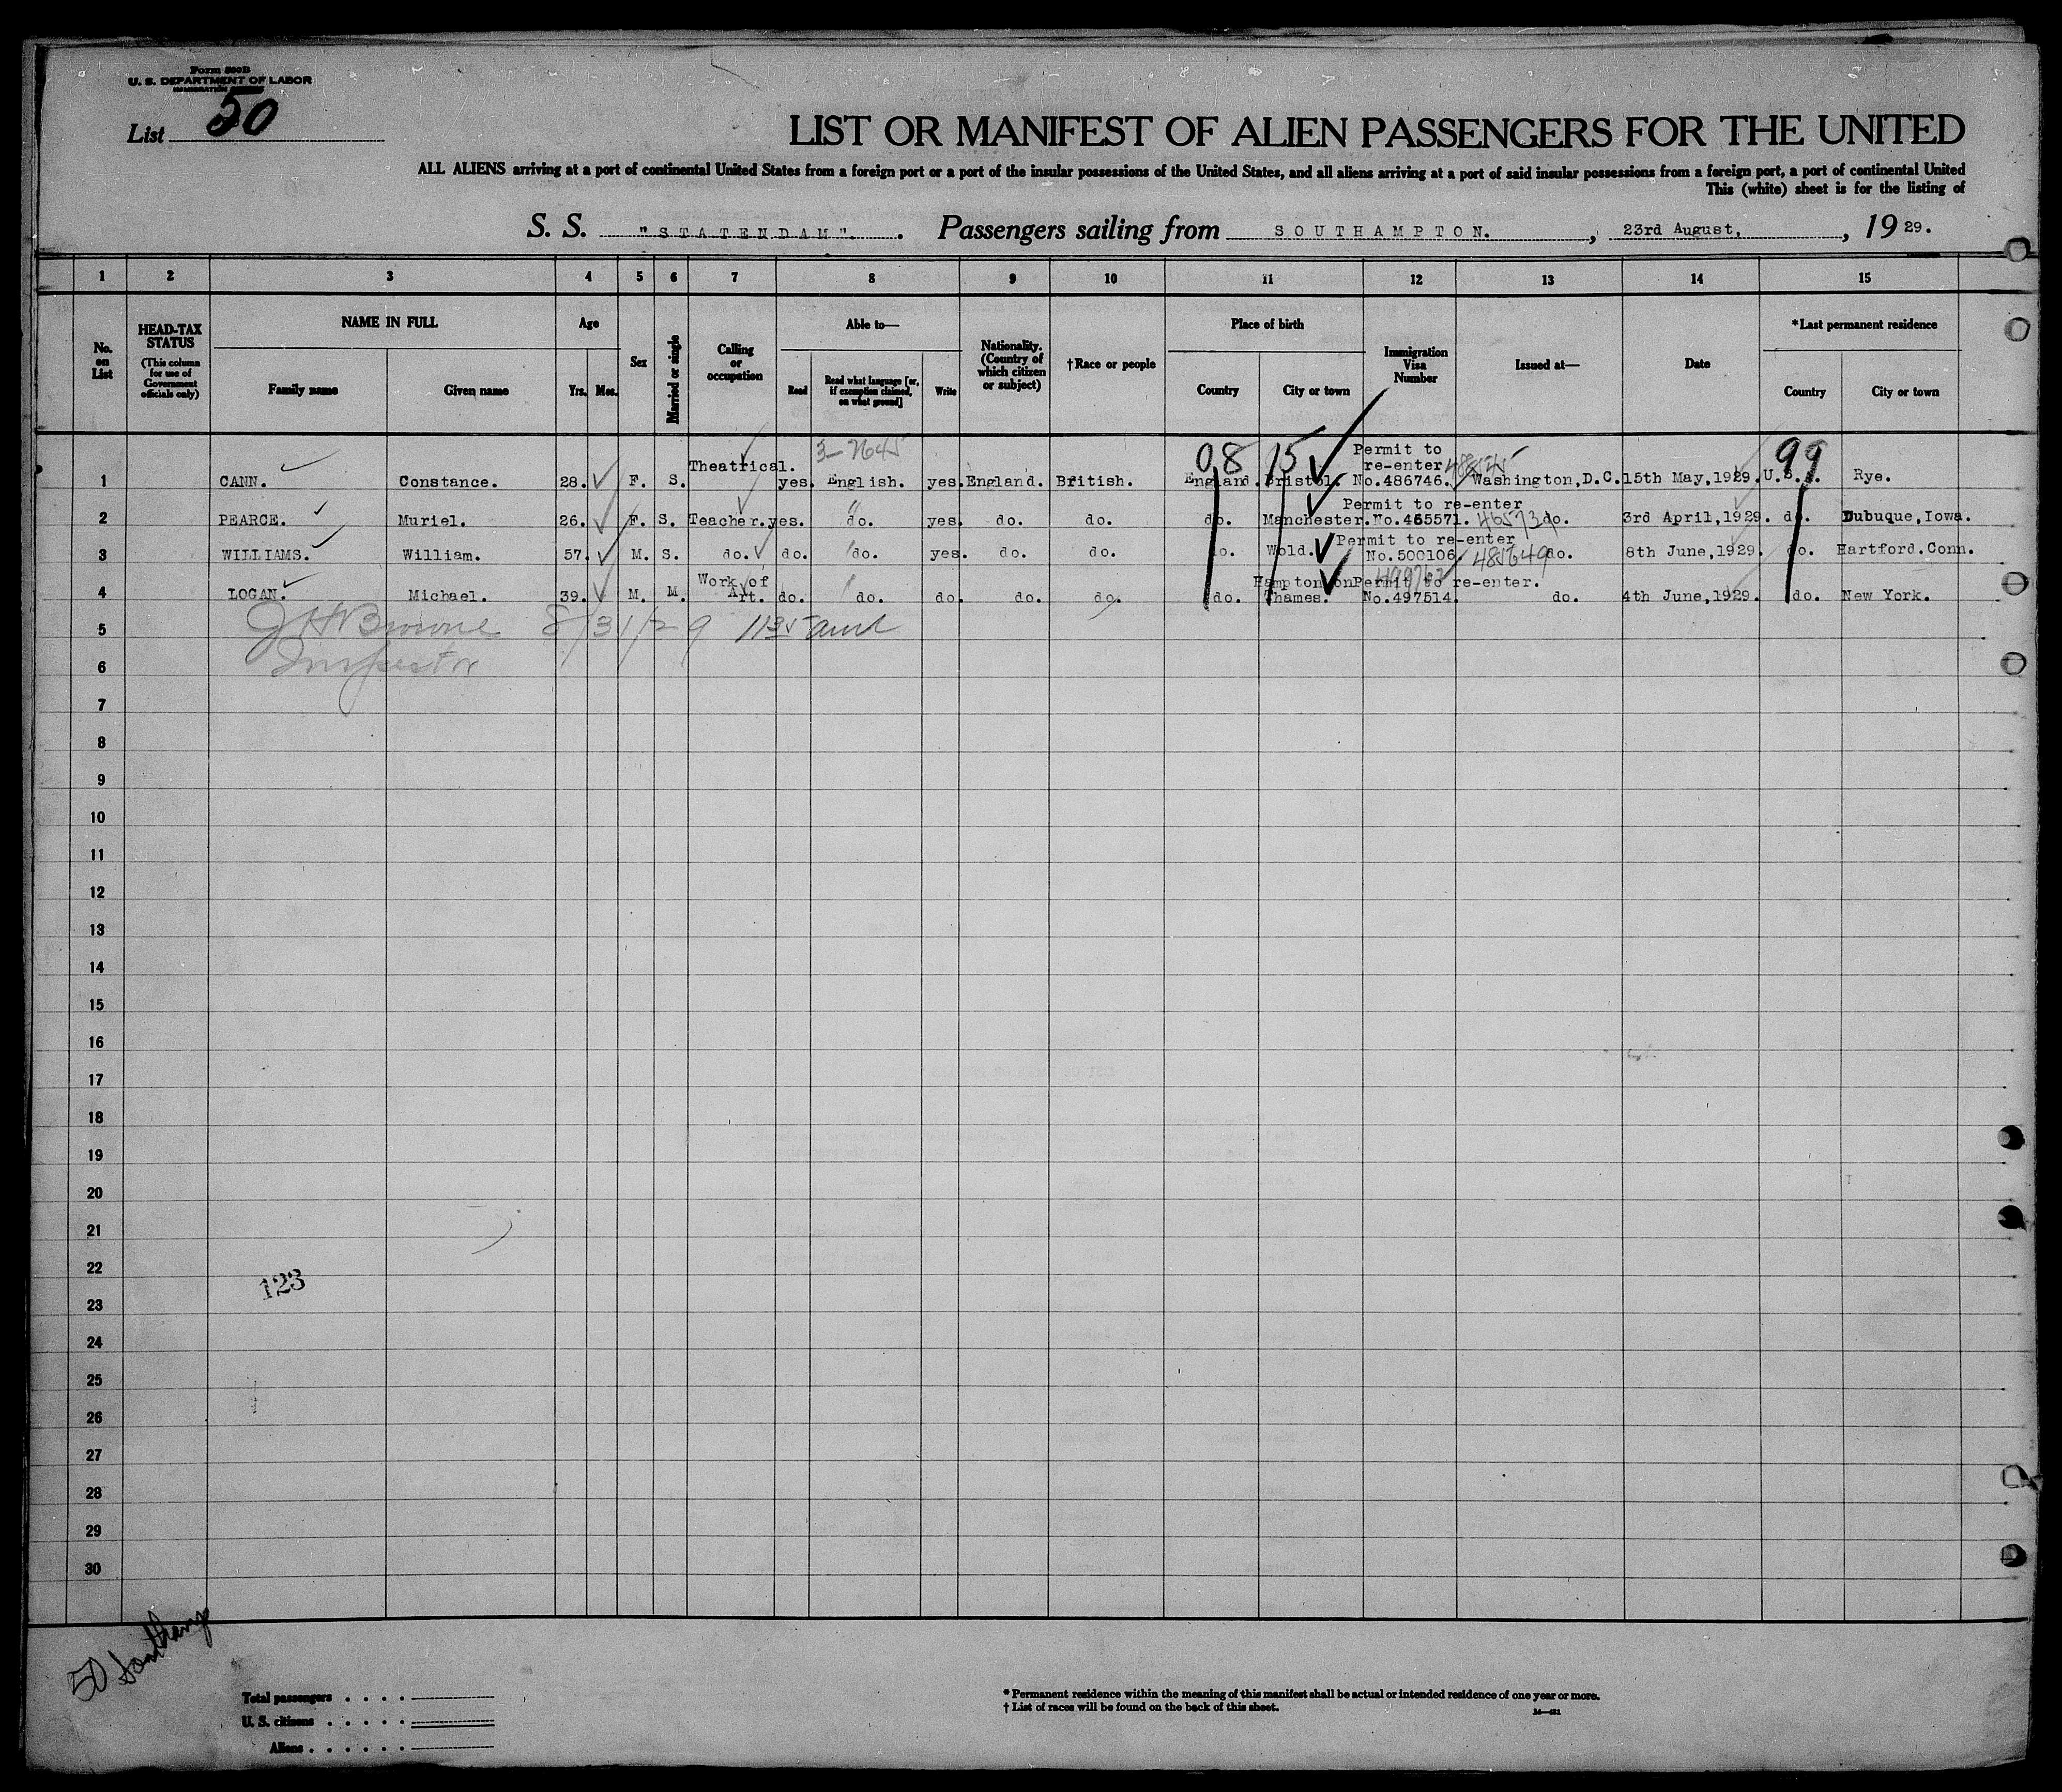 Form 500B
U. S. DEPARTMENT OF LABOR
IMMIGRATION
List 50
LIST OR MANIFEST OF ALIEN PASSENGERS FOR THE UNITED
ALL ALIENS arriving at a port of continental United States from a foreign port or a port of the insular possessions of the United States, and all aliens arriving at a port of said insular possessions from a foreign port, a port of continental United
This (white) sheet is for the listing of
S. S. "STATENDAM". Passengers sailing from SOUTHAMPTON. , 23rd August, , 19 29.
1 2 3 4 5 6 7 8 9 10 11 12 13 14 15
No. on List
HEAD-TAX STATUS (This column for use of Government officials only)
NAME IN FULL Family name Given name
Age Yrs. Mos.
Sex
Married or single
Calling or occupation
Able to— Read Read what language [or, if exemption claimed, on what ground] Write
Nationality. (Country of which citizen or subject)
†Race or people
Place of birth Country City or town
Immigration Visa Number
Issued at—
Date
*Last permanent residence Country City or town
3-7645 08 15 99
1 CANN. Constance. 28. F. S. Theatrical. yes. English. yes. England. British. England. Bristol. Permit to re-enter No.486746. Washington,D.C. 15th May,1929. U.S.A. Rye.
2 PEARCE. Muriel. 26. F. S. Teacher. yes. do. yes. do. do. do. Manchester. Permit to re-enter No.465571. do. 3rd April,1929. do. Dubuque,Iowa.
3 WILLIAMS. William. 57. M. S. do. do. do. yes. do. do. do. Wold. Permit to re-enter No.500106 485649 do. 8th June,1929. do. Hartford.Conn.
4 LOGAN. Michael. 39. M. M. Work of Art. do. do. do. do. do. do. Hampton on Thames. Permit to re-enter. No.497514. do. 4th June,1929. do. New York.
5 J H Browne 8/31/29 1135 am
6 Inspector
7
8
9
10
11
12
13
14
15
16
17
18
19
20
21
22
123
23
24
25
26
27
28
29
30
50 Southamp
Total passengers
U. S. citizens
Aliens
* Permanent residence within the meaning of this manifest shall be actual or intended residence of one year or more.
† List of races will be found on the back of this sheet.